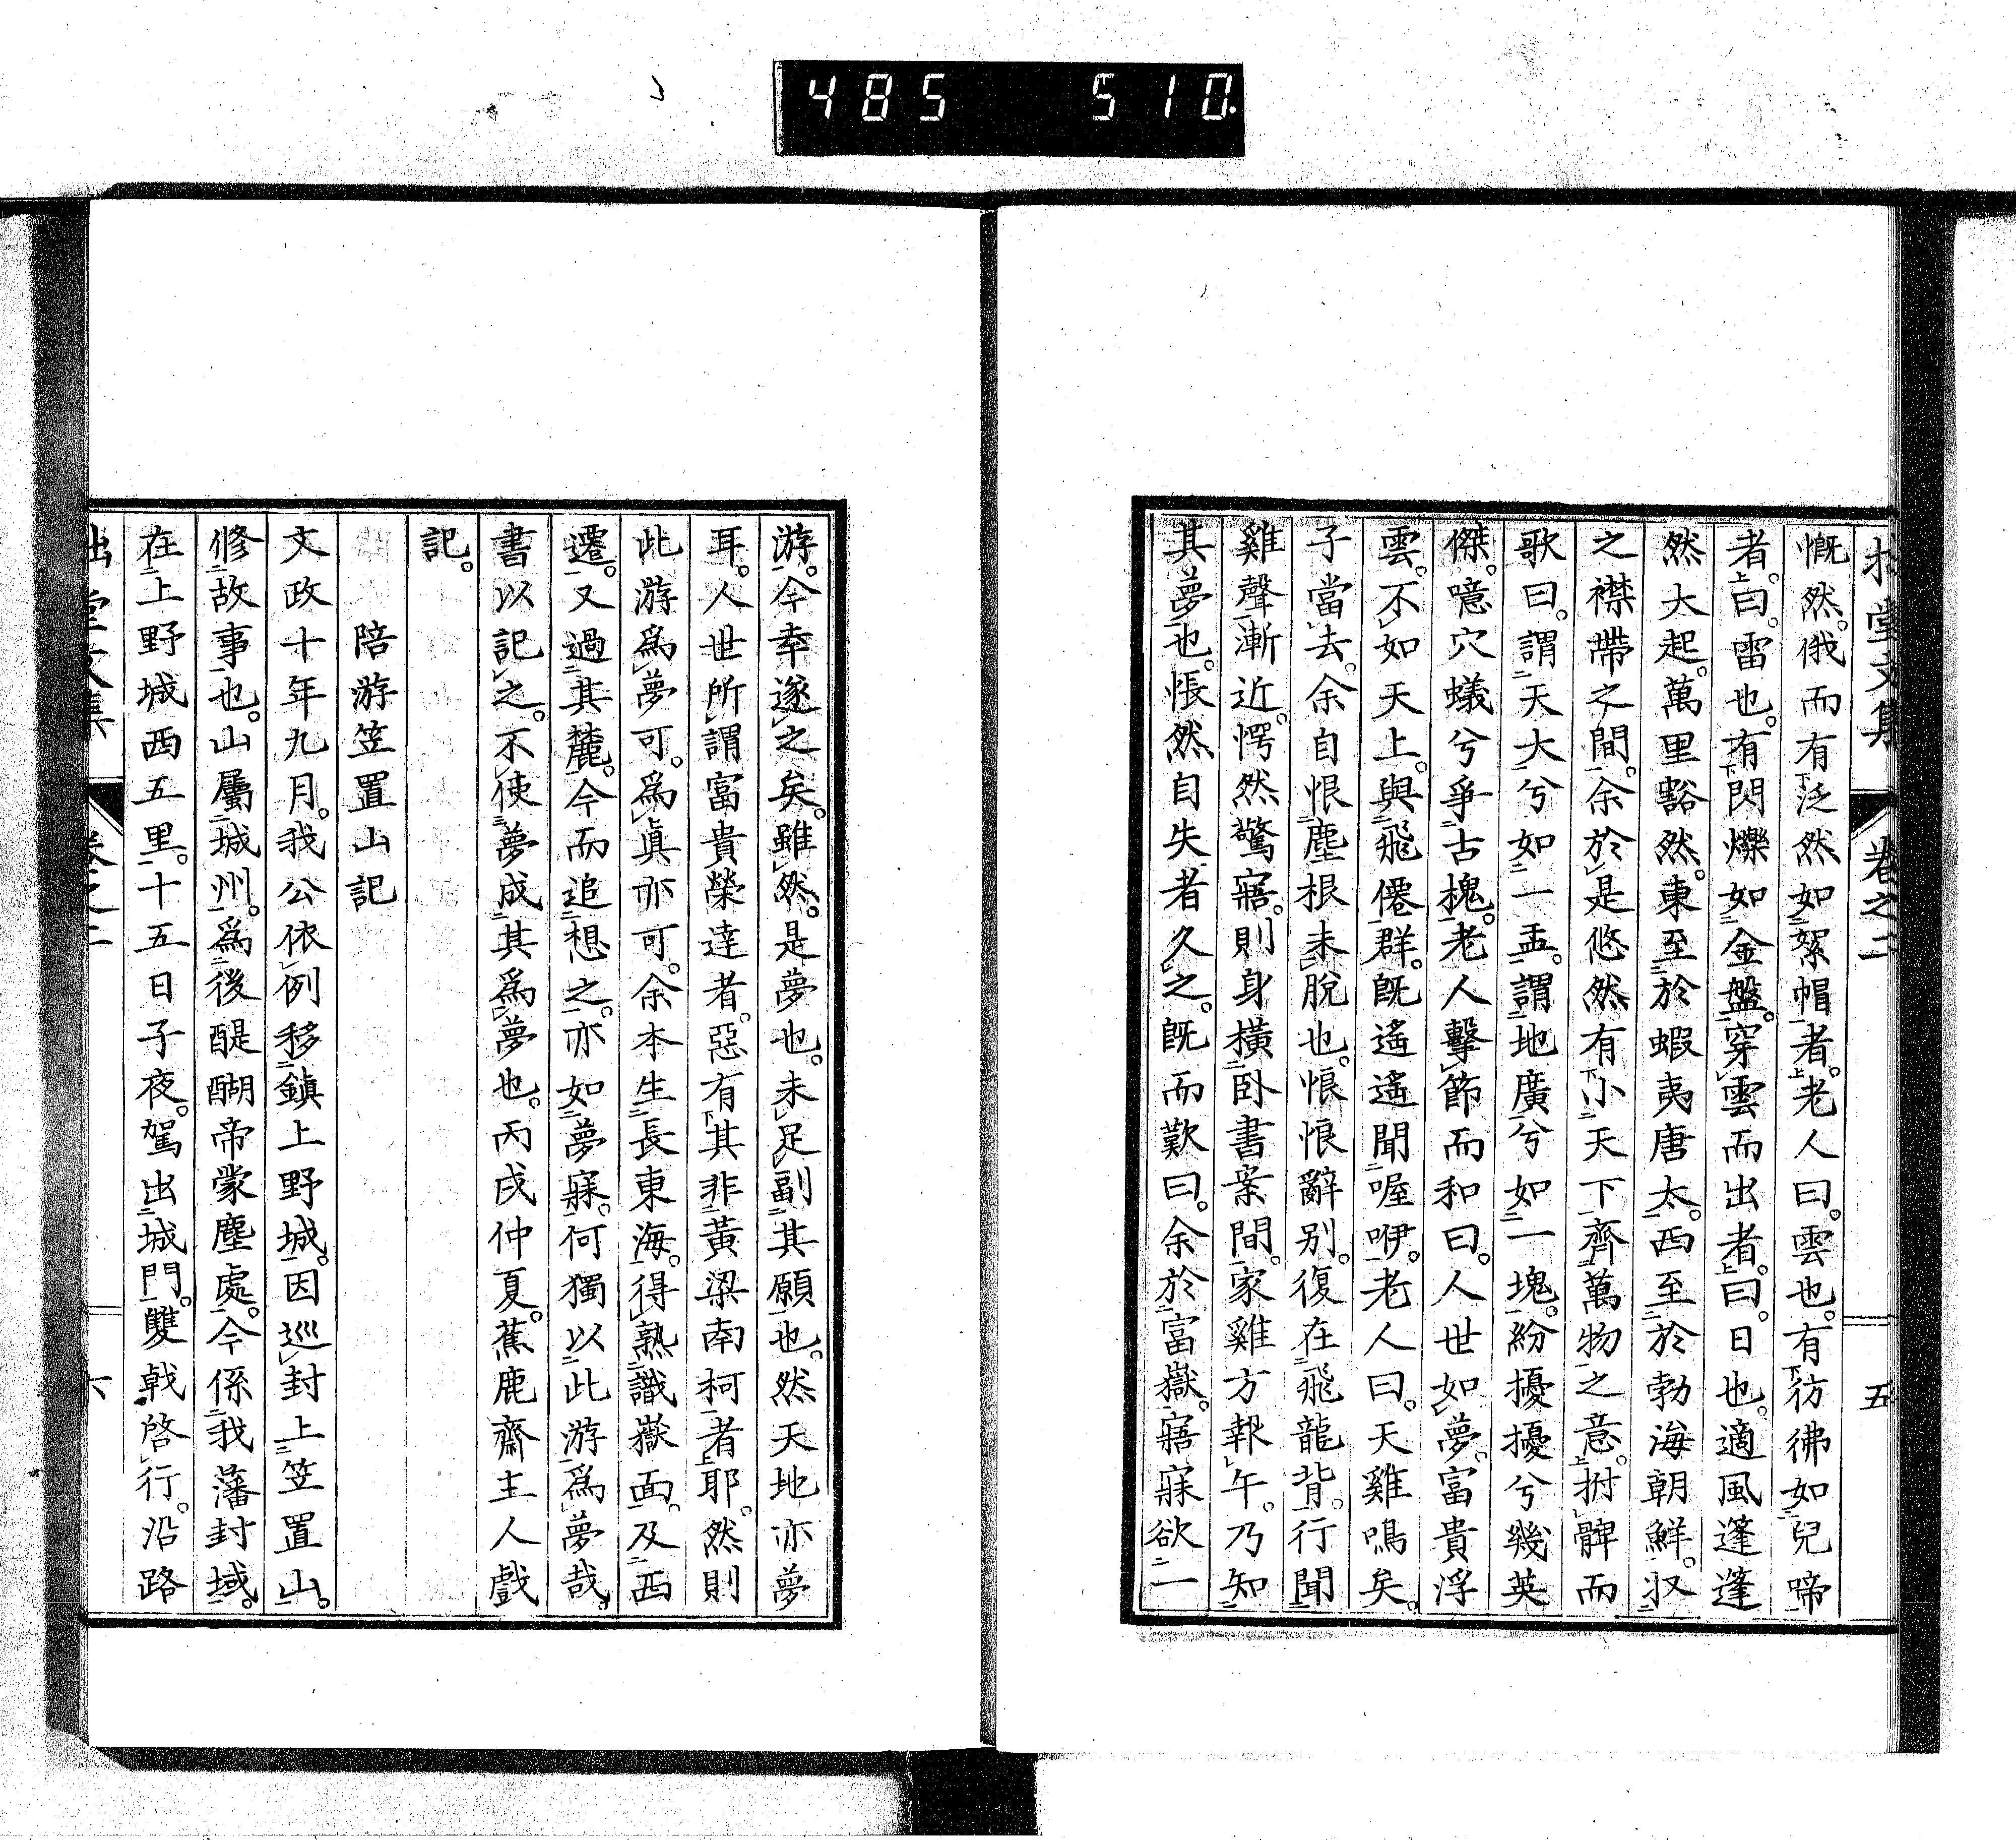 485 510.
拙堂文集 卷之二 五
慨然。俄而有泛然如絮帽者。老人曰。雲也。有彷彿如兒啼
者。曰。雷也。有閃爍如金盤。穿雲而出者。曰。日也。適風蓬蓬
然大起。萬里豁然。東至於蝦夷唐太。西至於勃海朝鮮。収
之襟帶之間。余於是悠然有小天下齊萬物之意。拊髀而
歌曰。謂天大兮如一盂。謂地廣兮如一塊。紛擾擾兮幾英
傑。噫穴蟻兮爭古槐。老人擊節而和曰。人世如夢。富貴浮
雲。不如天上。與飛僊群。既遙遙聞喔咿。老人曰。天雞鳴矣。
子當去。余自恨塵根未脫也。悵悵辭别。復在飛龍背。行聞
雞聲漸近。愕然驚寤。則身橫臥書案間。家雞方報午。乃知
其夢也。悵然自失者久之。既而歎曰。余於富嶽。寤寐欲一
游。今幸遂之矣。雖然。是夢也。未足副其願也。然天地亦夢
耳。人世所謂富貴榮達者。惡有其非黃梁南柯者耶。然則
此游爲夢可。爲眞亦可。余本生長東海。得熟識嶽面。及西
遷。又過其麓。今而追想之。亦如夢寐。何獨以此游爲夢哉。
書以記之。不使夢成其爲夢也。丙戌仲夏。蕉鹿齋主人戲
記。
陪游笠置山記
文政十年九月。我公依例移鎮上野城。因巡封上笠置山。
修故事也。山屬城州。爲後醍醐帝蒙塵處。今係我藩封域。
在上野城西五里。十五日子夜。駕出城門。雙戟啓行。沿路
拙堂文集 卷之二 六